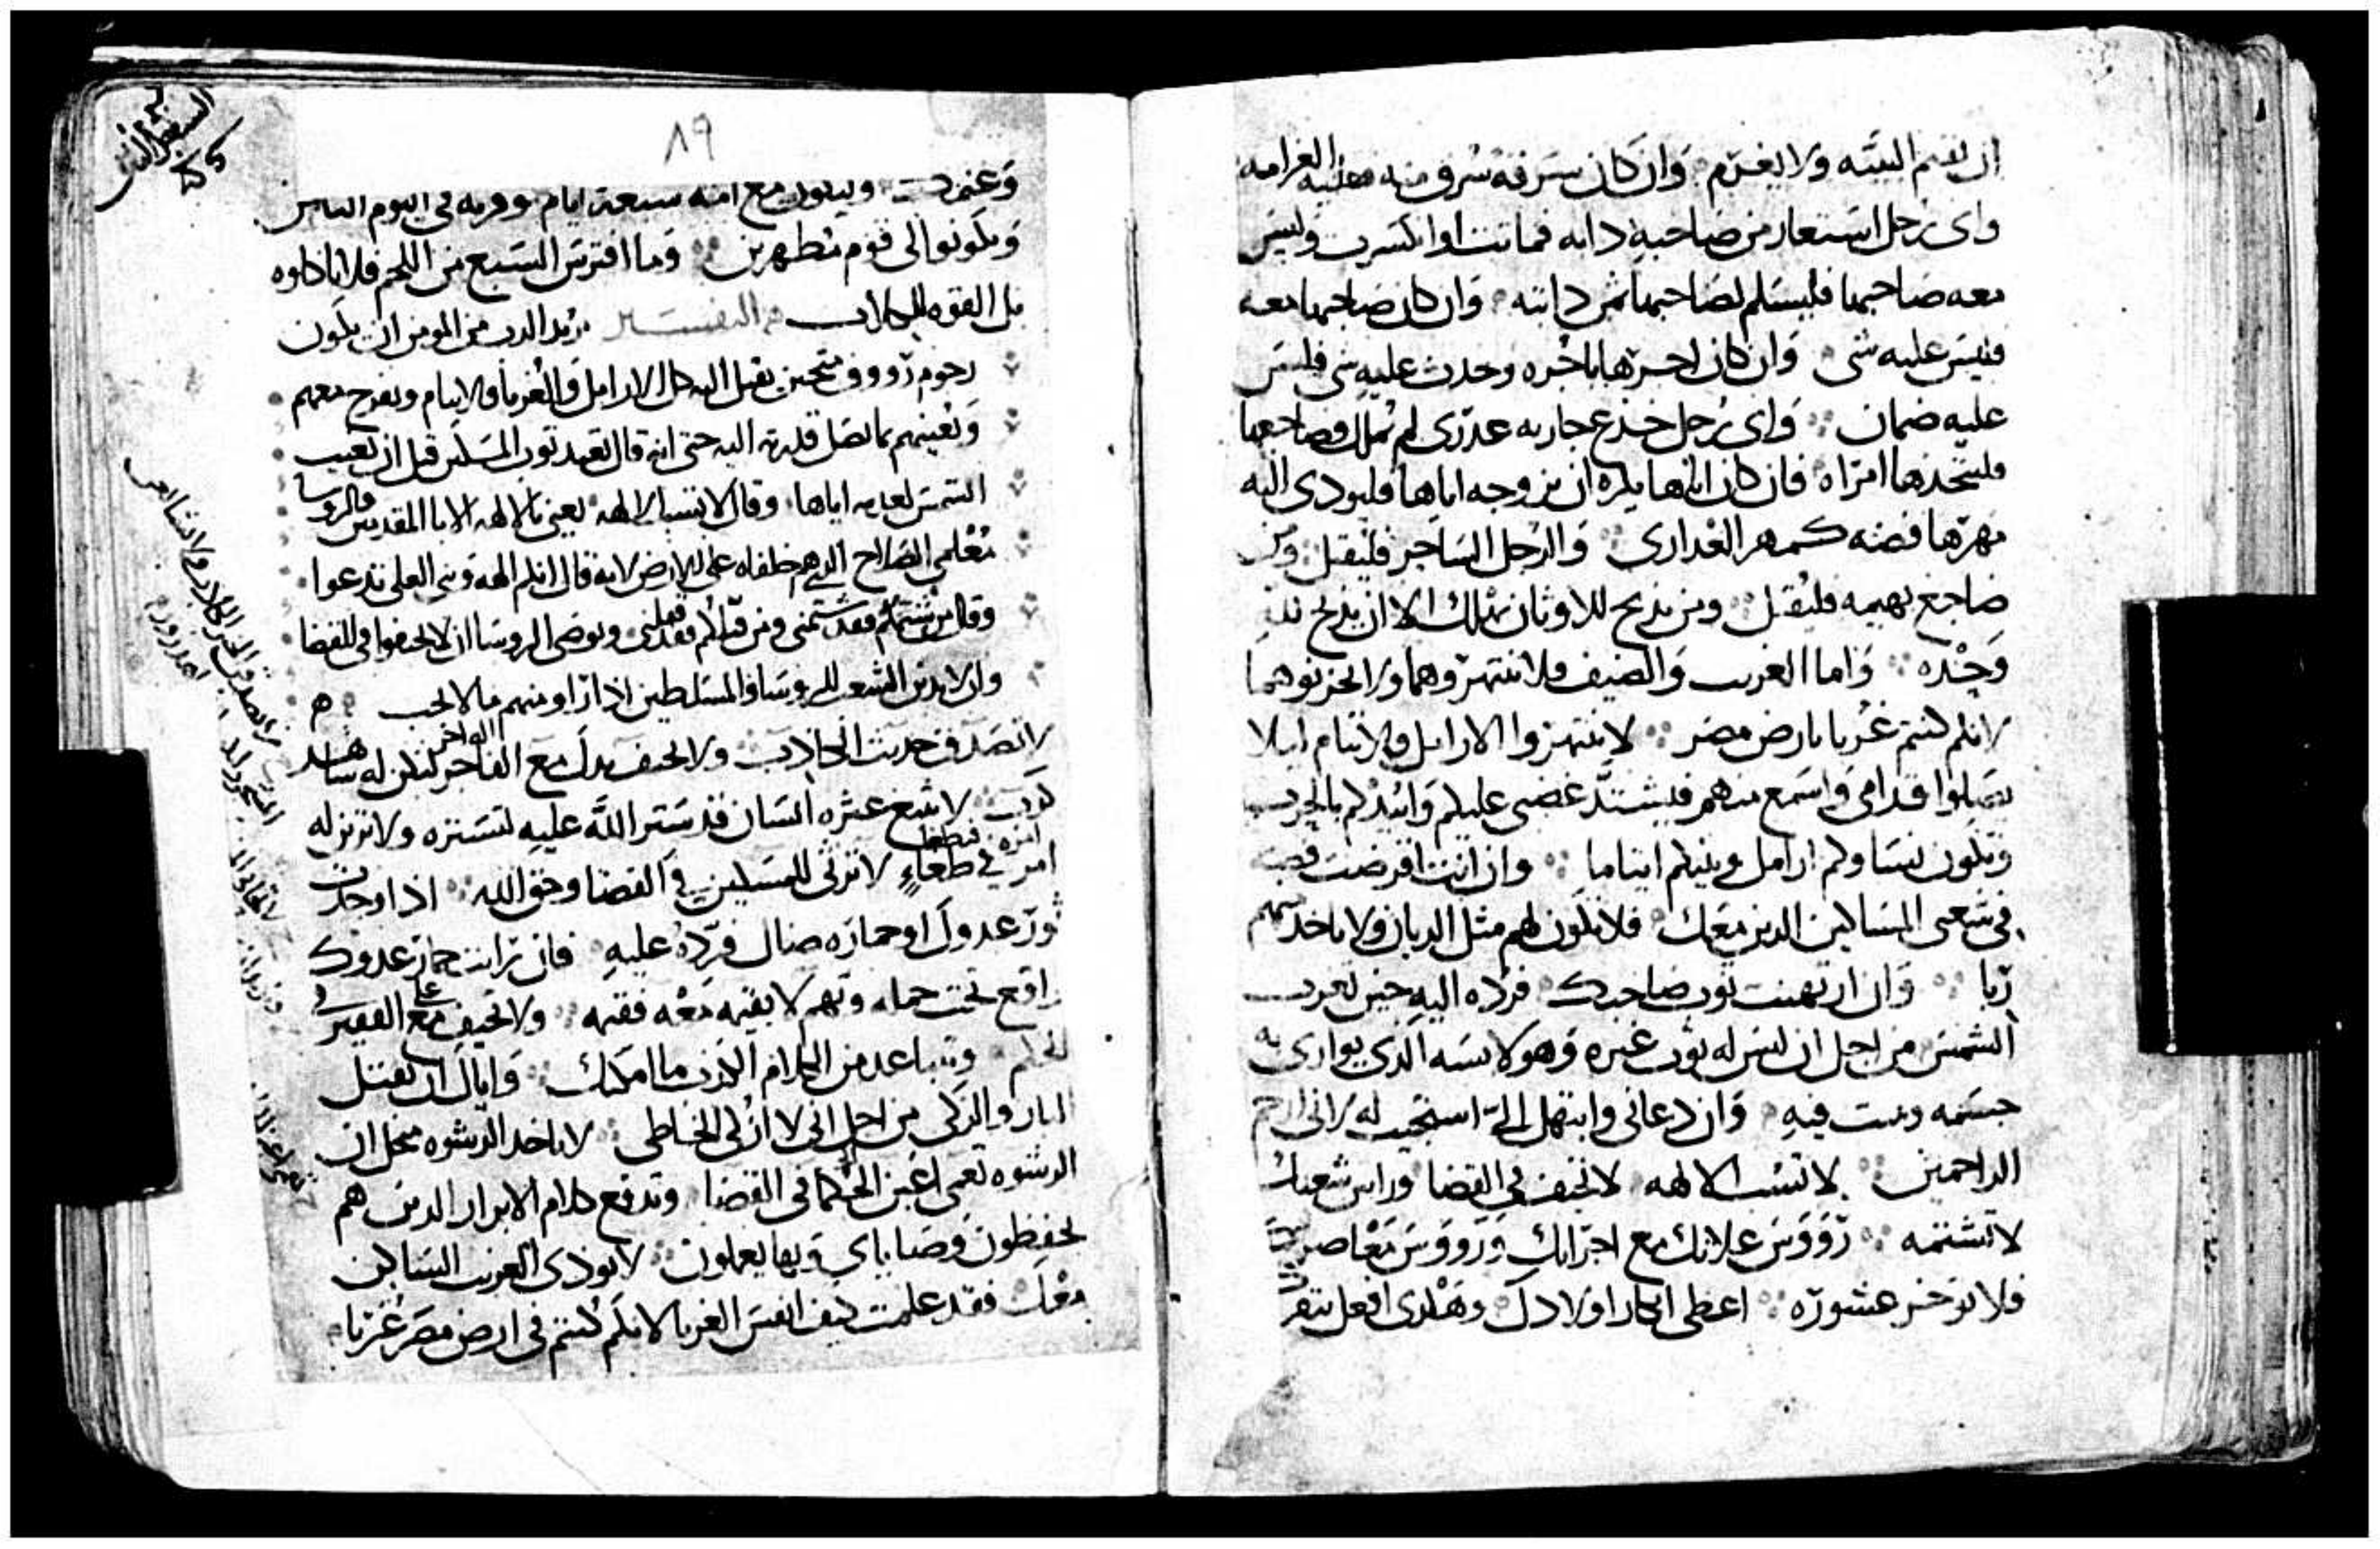 ان يقيم البينه ولا يغرم وان كان سرقه سرق منه فعليه الغرامه
واى رجل استعار من صاحبه دابه فماتت او انكسرت وليس
معه صاحبها فليسلم لصاحبها ثمن دابته وان كان صاحبها معه
فليس عليه شى وان كان اجرها باجره وحدث عليه شى فليس
عليه ضمان واى رجل خدع جاريه عذرى لم تملك وضاجعها
فليتخذها امراه فان كان اباها يكره ان يزوجه اياها فليودى اليه
مهرها فضه كمهر العدارى والرجل الساحر فليقتل ومن
ضاجع بهيمه فليقتل ومن يدبح للاوثان يهلك الا ان يدبح لله
وحده واما الغريب والضيف فلا تنتهروهما ولا تحزنوهما
لانكم كنتم غربا بارض مصر لا تنتهروا الارامل والايتام ليلا
يصلوا قدامى واسمع منهم فيشتد غضبى عليكم وابيدكم بالحرب
وتكون نساوكم ارامل وبنيكم ايتاما وان انت اقرضت فضه
فى شعبى المساكين الدين معك فلا تكون لهم مثل الديان ولا تاخد منهم
ربا وان ارتهنت توب صاحبك فرده اليه حين تغرب
الشمس من اجل ان ليس له توب غيره وهو لابسه الدى يوارى به
جسمه ويبيت فيه وان دعانى وابتهل الى استجيب له لانى ارحم
الراحمين لا تسب الالهه لا تحيف فى القضا وراس شعبك
لا تشتمه رووس غلاتك مع اجرانك ورووس معاصرك
فلا توخر عشوره اعطى ابكار اولادك وهكدى افعل ببقرك
٨٩
وغنمك ويكون مع امه سبعة ايام وقربه فى اليوم التامن
وتكونوا لى قوم متطهرين وما افترس السبع من اللحم فلا تاكلوه
بل القوه للكلاب التفسير يريد الرب من المومن ان يكون
رحوم رووف متحنن يقبل اليه كل الارامل والغربا والايتام ويفرح معهم
ويعينهم بما تصل قدرته اليه حتى انه قال تعيد توب المسكين قبل ان تغيب
الشمس لعدمه اياها وقال لا تسب الالهه يعنى بالالهه الابا المقدسين والروسا
معلمى الصلاح الدى هم خلفاه على الارض لانه قال انكم الهه وبنى العلى تدعوا
وقال من شتمكم فقد شتمنى ومن قبلكم فقد قبلنى ويوصى الروسا ان لا يحيفوا فى القضا
وان لا يدين الشعب للروسا والمسلطين اذا راو منهم ما لا يحب
لا تصدق حديث الكاذب ولا تحيف بدك مع الفاجر لتكن له شاهد
كذب لا تتبع عثره انسان قد ستر الله عليه لتستره ولا تزيز له
امر فى طغاء لا ترثى للمسكين فى القضا وحق الله اذا وجدت
ثور عدوك او حماره ضال فرده عليه فان رايت حمار عدوك
واقع تحت حمله وتهم لا بقيمه معه فقيمه ولا تحيف على الفقير فى
الحكم وتباعد من الكلام الكذب ما امكنك واياك ان تقتل
البار والزكى من اجل انى لا ازكى الخاطى لا تاخد الرشوه مجل ان
الرشوه تعمى اعين الحكما فى القضا وتدفع كلام الابرار الدين هم
يحفظون وصاياى وبها يعملون لا توذى الغريب الساكن
معك فقد علمت كيف انفس الغربا لانكم كنتم فى ارض مصر غربا